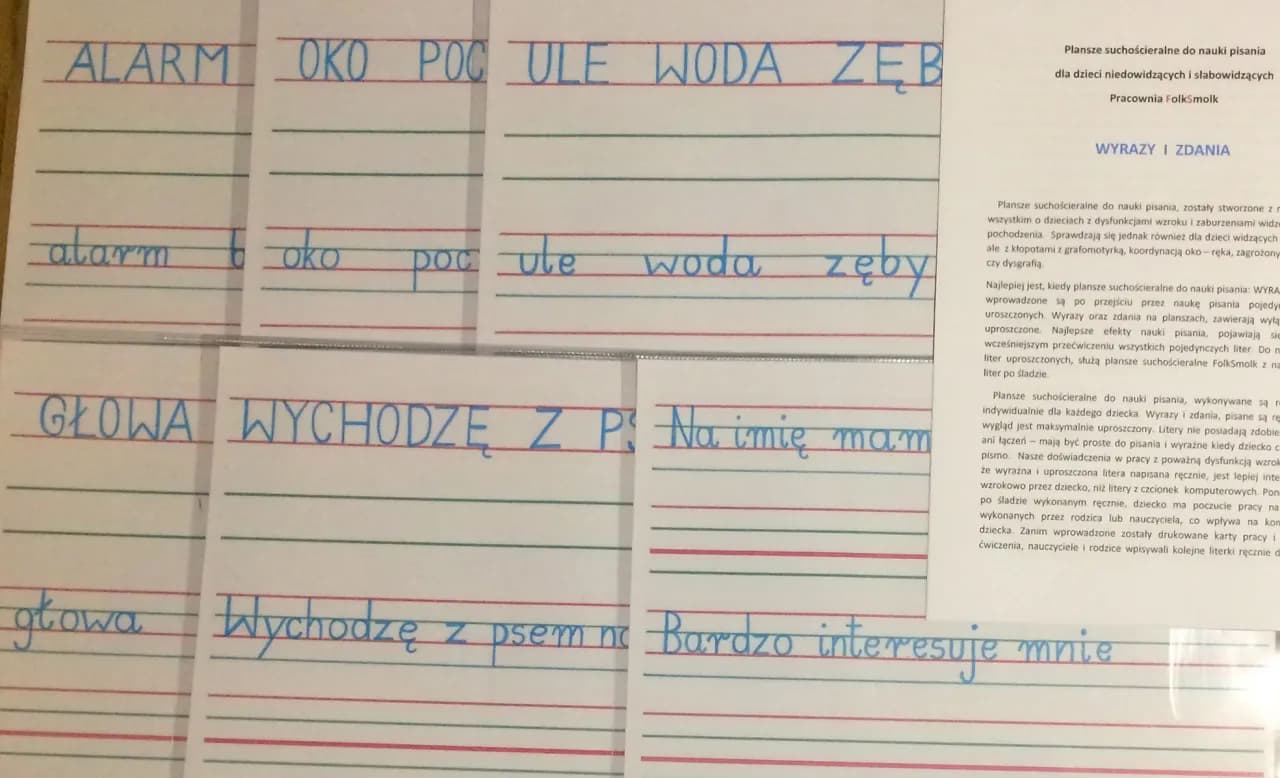 ALARM
alarm
OKO
oko
ULE WODA
ule woda zęby
GŁOWA
głowa
WYCHODZĘ Z
Wychodzę z psem
Na imię mam
Bardzo interesuje mnie
Plansze suchościeralne do nauki pisania
dla dzieci niedowidzących i słabowidzących
Pracownia FolkSmolk
WYRAZY I ZDANIA
Plansze suchościeralne do nauki pisania, zostały stworzone z
wszystkim o dzieciach z dysfunkcjami wzroku i zaburzeniami
pochodzenia. Sprawdzają się jednak również dla dzieci widzących
ale z kłopotami z grafomotyrką, koordynacją oko – ręka,
czy dysgrafią.
Najlepiej jest, kiedy plansze suchościeralne do nauki pisania:
wprowadzone są po przejściu przez naukę pisania
uroszczonych. Wyrazy oraz zdania na planszach, zawierają
uproszczone. Najlepsze efekty nauki pisania, pojawiają
wcześniejszym przećwiczeniu wszystkich pojedynczych liter. Do
liter uproszczonych, służą plansze suchościeralne FolkSmolk z
liter po śladzie.
Plansze suchościeralne do nauki pisania, wykonywane są
indywidualnie dla każdego dziecka. Wyrazy i zdania, pisane są
wygląd jest maksymalnie uproszczony. Litery nie posiadają
ani łączeń – mają być proste do pisania i wyraźne kiedy dziecko
pismo. Nasze doświadczenia w pracy z poważną dysfunkcją
że wyraźna i uproszczona litera napisana ręcznie, jest lepiej
wzrokowo przez dziecko, niż litery z czcionek komputerowych.
po śladzie wykonanym ręcznie, dziecko ma poczucie pracy
wykonanych przez rodzica lub nauczyciela, co wpływa na
dziecka. Zanim wprowadzone zostały drukowane karty pracy i
ćwiczenia, nauczyciele i rodzice wpisywali kolejne literki ręcznie